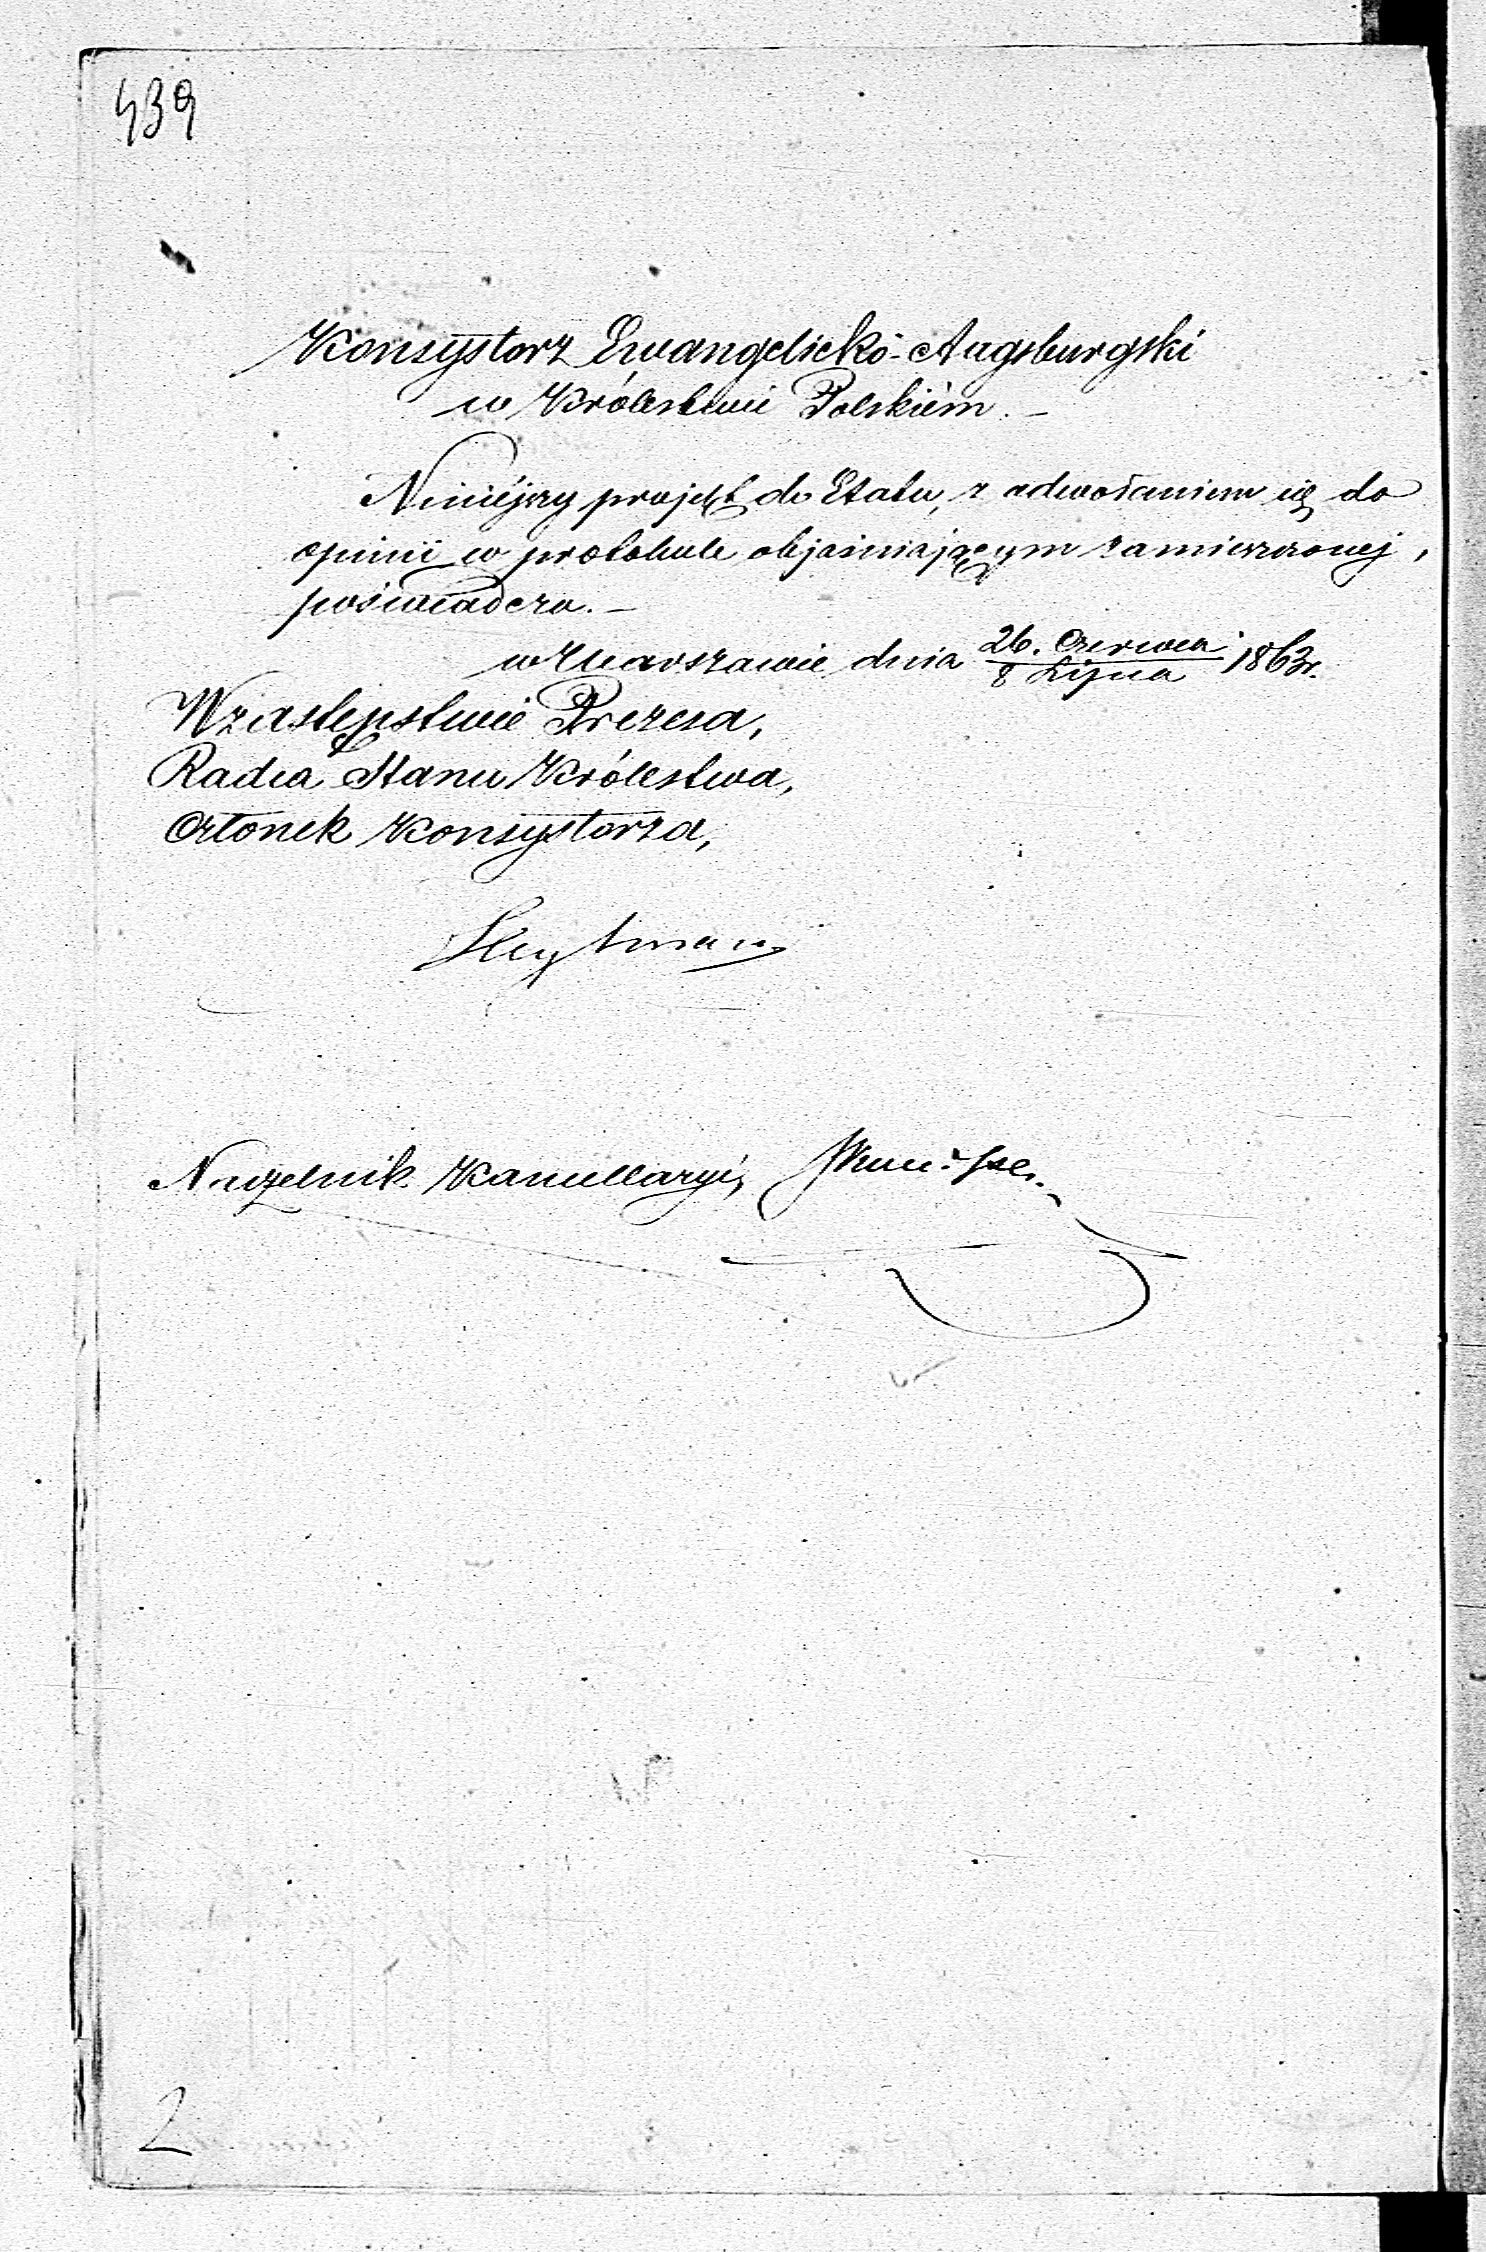 439
Konsystorz Ewangelicko-Augsburgski
w Królestwie Polskiém.-
Niniéjszy projekt do Etatu, z odwołaniem się do
opinii w protokule objaśniającym zamieszczonej,
poświadcza.-
w Warszawie dnia 26. Czerwca / 8 Lipca 1863r.
W zastępstwie Prezesa,
Radca Stanu Królestwa,
Członek Konsystorza,
Naczelnik Kancellaryi,
2